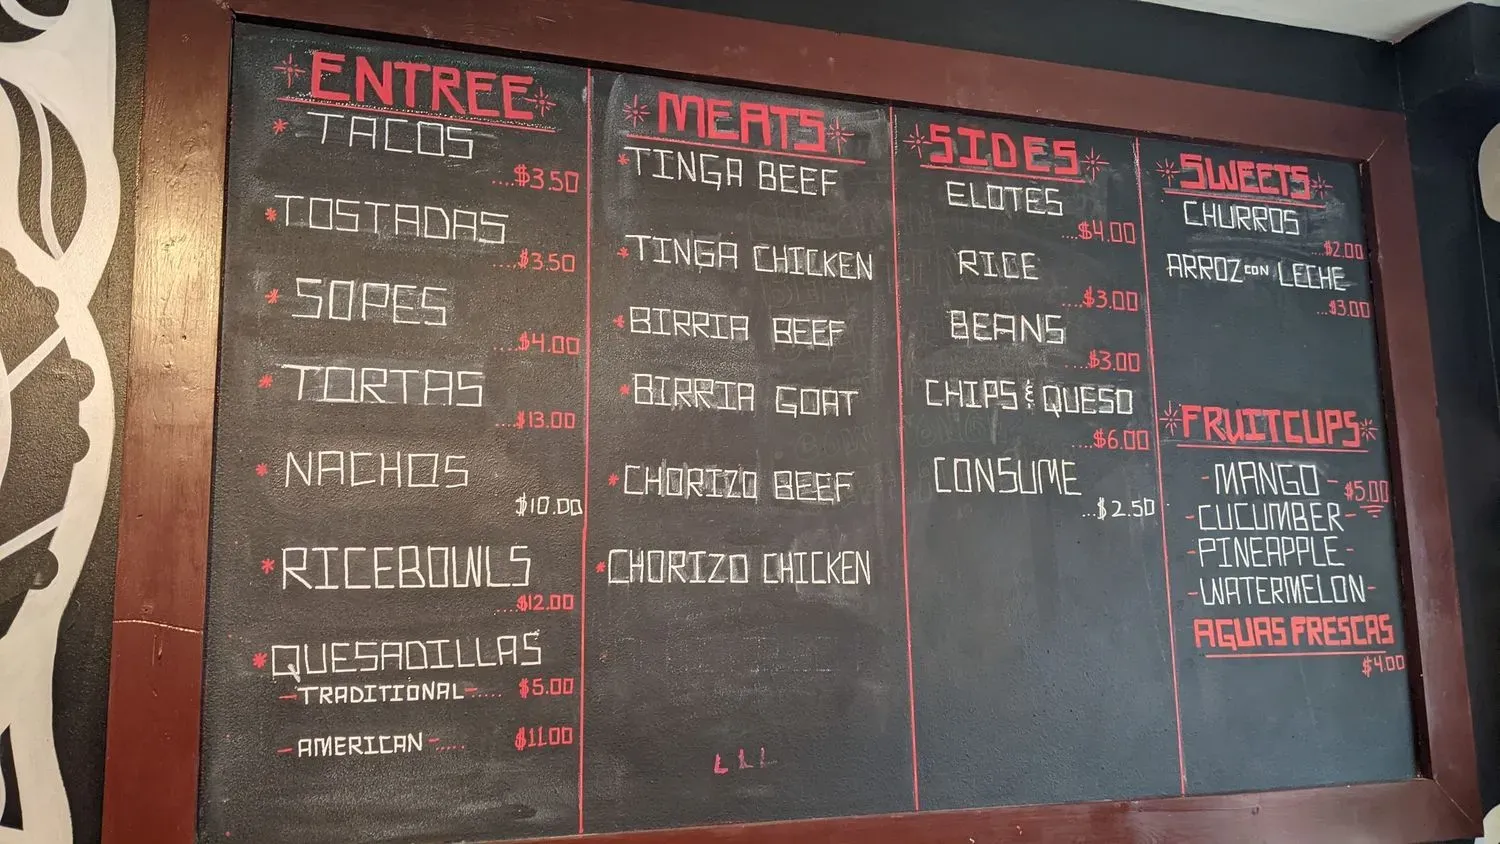 ENTREE
* TACOS
....$3.50
*TOSTADAS
....$3.50
* SOPES
....$4.00
* TORTAS
...$13.00
* NACHOS
$10.00
* RICEBOWLS
....$12.00
*QUESADILLAS
-TRADITIONAL-..... $5.00
-AMERICAN-..... $11.00
MEATS
*TINGA BEEF
*TINGA CHICKEN
*BIRRIA BEEF
*BIRRIA GOAT
*CHORIZO BEEF
*CHORIZO CHICKEN
SIDES
ELOTES
....$4.00
RICE
....$3.00
BEANS
....$3.00
CHIPS & QUESO
....$6.00
CONSUME
...$2.50
SWEETS
CHURROS
...$2.00
ARROZ CON LECHE
...$3.00
FRUITCUPS
-MANGO- $5.00
-CUCUMBER-
-PINEAPPLE-
-WATERMELON-
AGUAS FRESCAS
$4.00